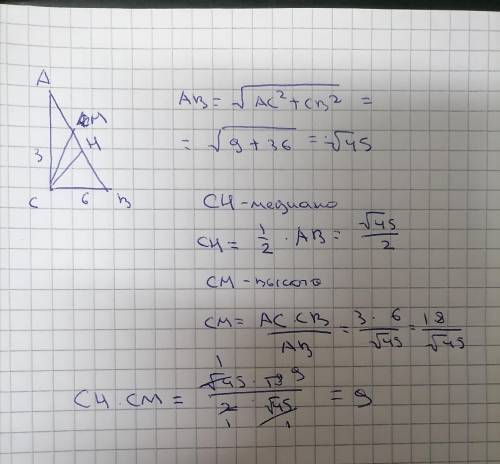 A
M
H
3
C 6 B
AB = √AC² + CB² =
= √9 + 36 = √45
CH - медиано
CH = 1/2 · AB = √45/2
CM - высото
CM = AC · CB / AB = 3 · 6 / √45 = 18/√45
CH · CM = √45 · 18 / 2 · √45 = 9
1 9
1 1